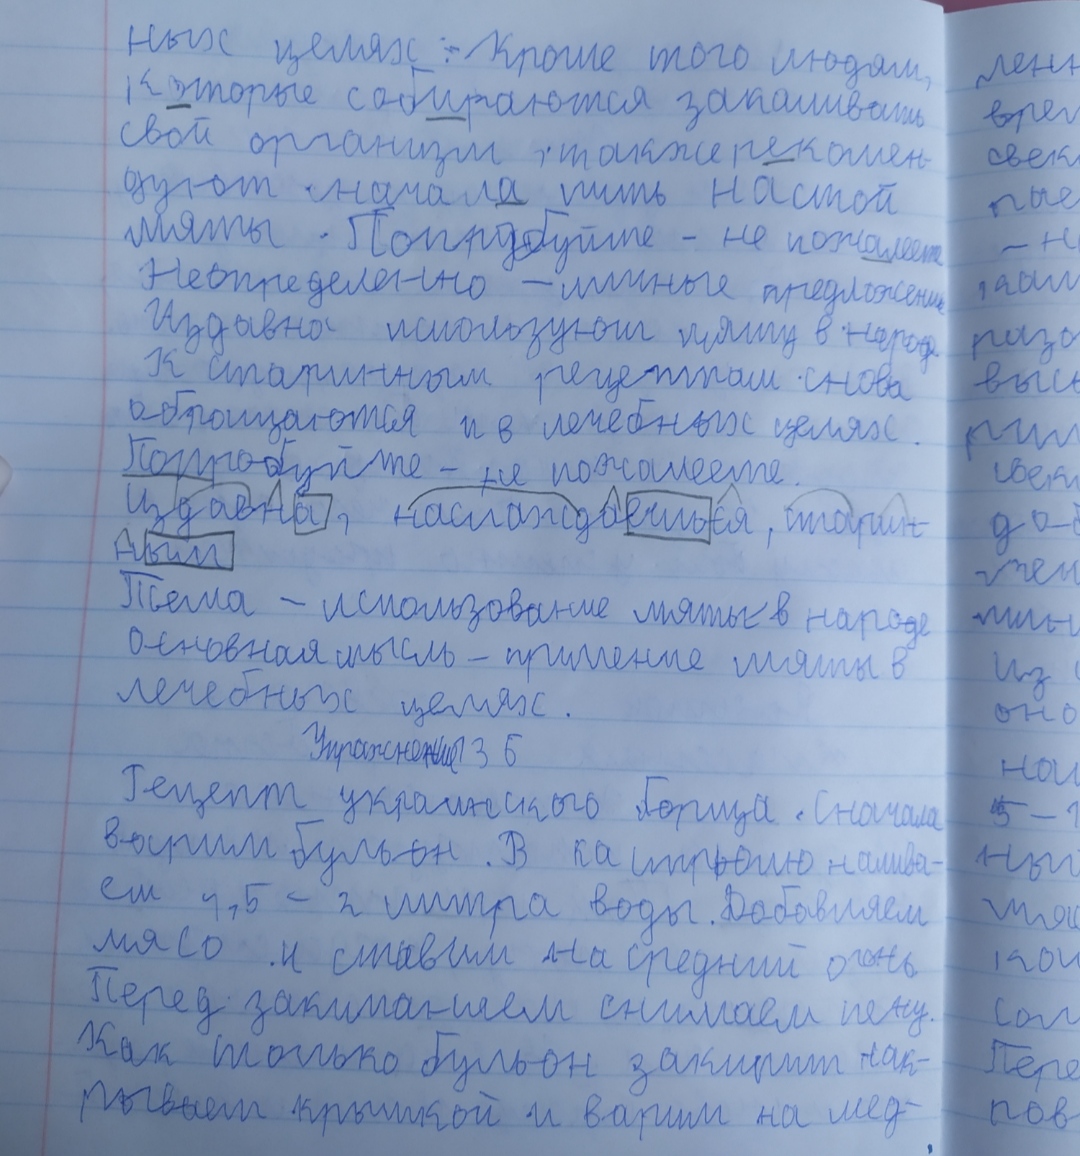 ных целях. Кроме того людям,
которые собираются закаливать
свой организм, также рекомен-
дуют сначала пить настой
мяты. Попробуйте - не пожалеете
Неопределенно - личные предложение
Издавна используют мяту в народ.
К старинным рецептам снова
обращаются и в лечебных целях.
Попробуйте - не пожалеете.
Издавна, наслаждаешься, старин-
ным
Тема - использование мяты в народе
Основная мысль - применение мяты в
лечебных целях.
Упражнение 36
Рецепт украинского борща. Сначала
варим бульон. В кастрюлю налива-
ем 1,5 - 2 литра воды. Добавляем
мясо и ставим на средний огонь
Перед закипанием снимаем пену.
Как только бульон закипит нак-
рываем крышкой и варим на мед-
ленн
врем
свекл
- н
разо
высы
свек
доб
из
оно
5 - 1
ный
мяс
сол
Пере
пов